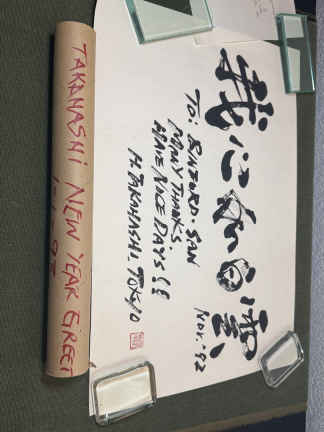 我心如白雲
NOV. '92
TO: BINFORD-SAN
MANY THANKS.
HAVE NICE DAYS!!
H. TAKAHASHI. TOKYO
TAKAHASHI NEW YEAR GREET